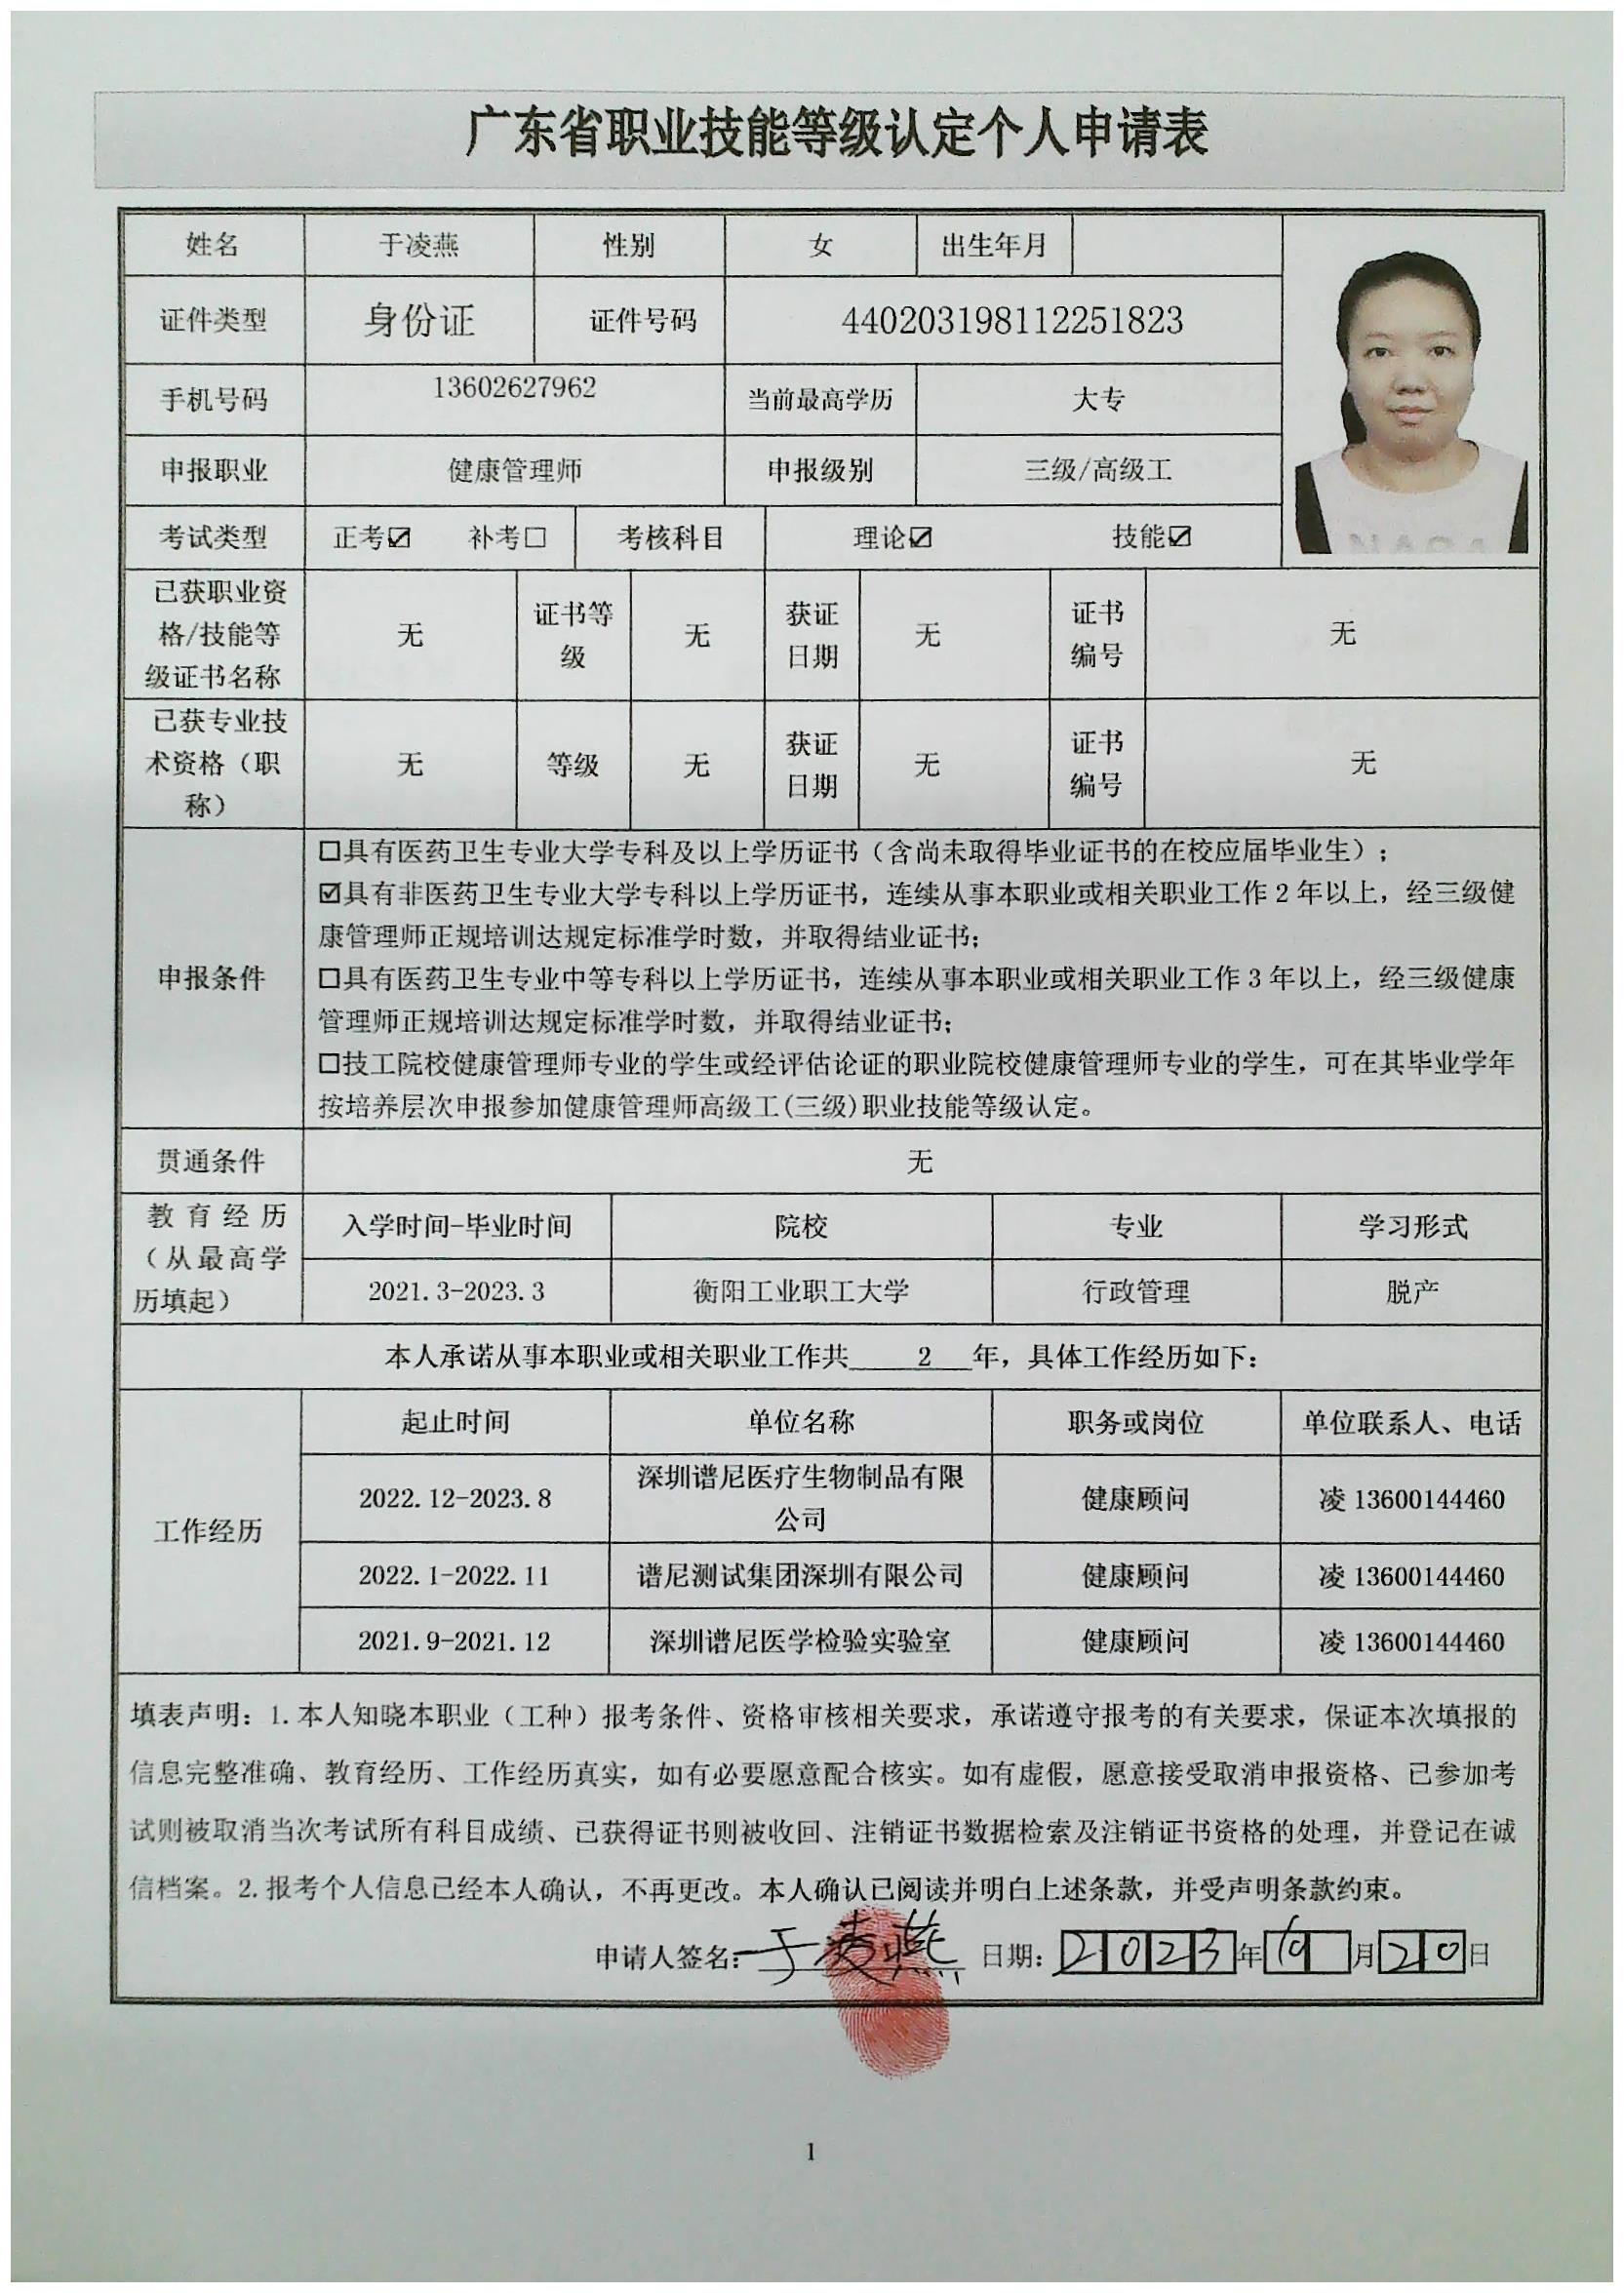 广东省职业技能等级认定个人申请表
姓名 于凌燕 性别 女 出生年月
证件类型 身份证 证件号码 440203198112251823
手机号码 13602627962 当前最高学历 大专
申报职业 健康管理师 申报级别 三级/高级工
考试类型 正考☑ 补考☐ 考核科目 理论☑ 技能☑
已获职业资
格/技能等
级证书名称
无
证书等
级
无
获证
日期
无
证书
编号
无
已获专业技
术资格（职
称）
无
等级
无
获证
日期
无
证书
编号
无
申报条件
☐具有医药卫生专业大学专科及以上学历证书（含尚未取得毕业证书的在校应届毕业生）；
☑具有非医药卫生专业大学专科以上学历证书，连续从事本职业或相关职业工作 2 年以上，经三级健
康管理师正规培训达规定标准学时数，并取得结业证书；
☐具有医药卫生专业中等专科以上学历证书，连续从事本职业或相关职业工作 3 年以上，经三级健康
管理师正规培训达规定标准学时数，并取得结业证书；
☐技工院校健康管理师专业的学生或经评估论证的职业院校健康管理师专业的学生，可在其毕业学年
按培养层次申报参加健康管理师高级工(三级)职业技能等级认定。
贯通条件 无
教育经历
（从最高学
历填起）
入学时间-毕业时间 院校 专业 学习形式
2021.3-2023.3 衡阳工业职工大学 行政管理 脱产
本人承诺从事本职业或相关职业工作共 2 年，具体工作经历如下：
工作经历
起止时间 单位名称 职务或岗位 单位联系人、电话
2022.12-2023.8 深圳谱尼医疗生物制品有限
公司 健康顾问 凌 13600144460
2022.1-2022.11 谱尼测试集团深圳有限公司 健康顾问 凌 13600144460
2021.9-2021.12 深圳谱尼医学检验实验室 健康顾问 凌 13600144460
填表声明：1.本人知晓本职业（工种）报考条件、资格审核相关要求，承诺遵守报考的有关要求，保证本次填报的
信息完整准确、教育经历、工作经历真实，如有必要愿意配合核实。如有虚假，愿意接受取消申报资格、已参加考
试则被取消当次考试所有科目成绩、已获得证书则被收回、注销证书数据检索及注销证书资格的处理，并登记在诚
信档案。2.报考个人信息已经本人确认，不再更改。本人确认已阅读并明白上述条款，并受声明条款约束。
申请人签名：于凌燕 日期：2023年 月20日
1